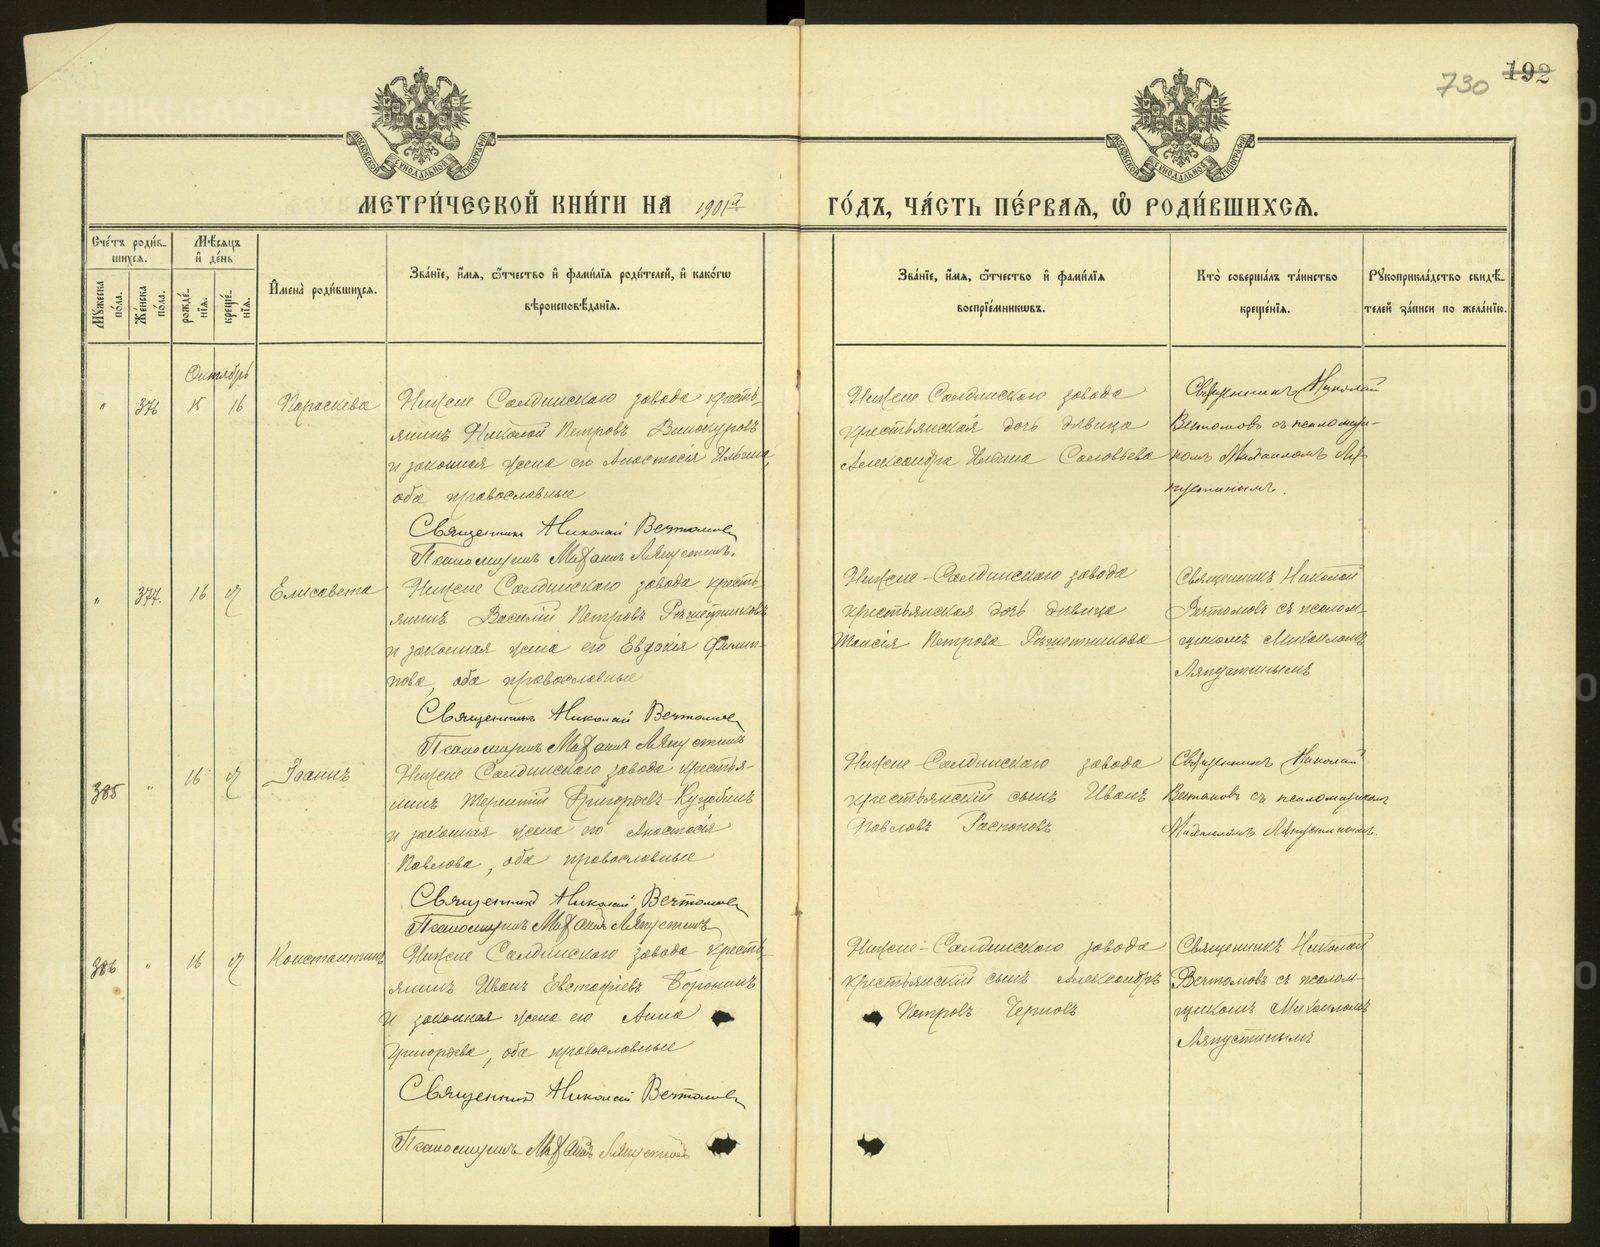 730
192
МЕТРИ́ЧЕСКОЙ КНИ́ГИ НА 1901й ГО́ДЪ, ЧА́СТЬ ПЕ́РВАЯ, Ѡ РОДИ́ВШИХСЯ.
МОСКОВСКОЙ СѴНОДАЛЬНОЙ ТИПОГРАФІИ
МОСКОВСКОЙ СѴНОДАЛЬНОЙ ТИПОГРАФІИ
Сче́тъ роди́в-
шихся.
Мꙋжеска по́ла.
Же́нска по́ла.
Мѣ́сяцъ
и҆ де́нь
рожде́-
нїя.
креще́-
нїя.
И҆мена̀ роди́вшихся.
Зва́нїе, и҆́мя, ѻ҆́тчество и҆ фами́лїя роди́телей, и҆ како́гѡ
вѣроисповѣ́данїя.
Зва́нїе, и҆́мя, ѻ҆́тчество и҆ фами́лїя
воспрїе́мникѡвъ.
Кто̀ соверша́лъ та́инство
креще́нїя.
Рꙋкоприкла́дство свидѣ́-
телей за́писи по жела́нїю.
Октябрь
" 376 15 16 Параскева
Нижне Салдинскаго завода кресть-
янинъ Николай Петровъ Винокуровъ
и законная жена его Анастасія Ильина,
оба православные
Священникъ Николай Вечтомовъ
Псаломщикъ Михаилъ Ляпустинъ.
Нижне Салдинскаго завода
крестьянская дочь дѣвица
Александра Ильина Соловьева
Священникъ Николай
Вечтомовъ съ псаломщи-
комъ Михаиломъ Ля-
пустинымъ.
" 377. 16 17 Елисавета
Нижне Салдинскаго завода кресть-
янинъ Василій Петровъ Рѣшетниковъ
и законная жена его Евдокія Филип-
пова, оба православные
Священникъ Николай Вечтомовъ
Псаломщикъ Михаилъ Ляпустинъ
Нижне-Салдинскаго завода
крестьянская дочь дѣвица
Таисія Петрова Рѣшетникова
Священникъ Николай
Вечтомовъ съ псалом-
щикомъ Михаиломъ
Ляпустинымъ
385 " 16 17 Іоаннъ
Нижне Салдинскаго завода крестья-
нинъ Терентій Григорьевъ
и законная жена его Анастасія
Павлова, оба православные
Священникъ Николай Вечтомовъ
Псаломщикъ Михаилъ Ляпустинъ
Нижне-Салдинскаго завода
крестьянскій сынъ Иванъ
Павловъ Распоповъ
Священникъ Николай
Вечтомовъ съ псаломщикомъ
Михаиломъ Ляпустинымъ.
386 " 16 17 Константинъ
Нижне Салдинскаго завода кресть-
янинъ Иванъ Евстафіевъ Воронинъ
и законная жена его Анна
Григорьева, оба православные
Священникъ Николай Вечтомовъ
Псаломщикъ Михаилъ Ляпустинъ
Нижне-Салдинскаго завода
крестьянскій сынъ Александръ
Петровъ Черновъ
Священникъ Николай
Вечтомовъ съ псалом-
щикомъ Михаиломъ
Ляпустинымъ
METRIKI.GASO-URAL.RU